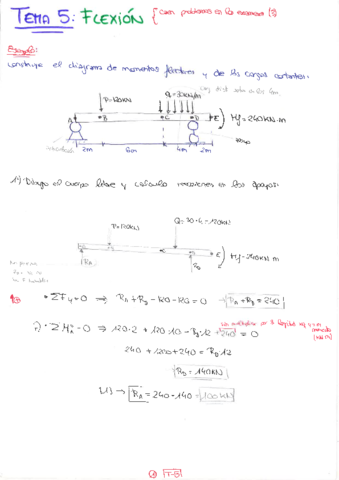 TEMA 5: FLEXIÓN { caen problemas en los exámenes (3)
Ejemplo:
Construye el diagrama de momentos flectores y de los cargas cortantes:
P=120kN
q=30kN/m
A B C D E
Mf=240KN·m
2m 6m 4m 2m
1º) Dibujo el cuerpo libre y calculo reacciones en los apoyos:
P=120kN
Q=30·4=120kN
E
Mf=240KN·m
RA
RD
• ΣFy=0 ⇒ RA+RD-120-120=0 RA+RD=240
ΣMA=0 ⇒ 120·2+120·10-RD·12+240=0
240+1200+240=RD·12
RD=140KN
RA=240-140=100KN
T-5